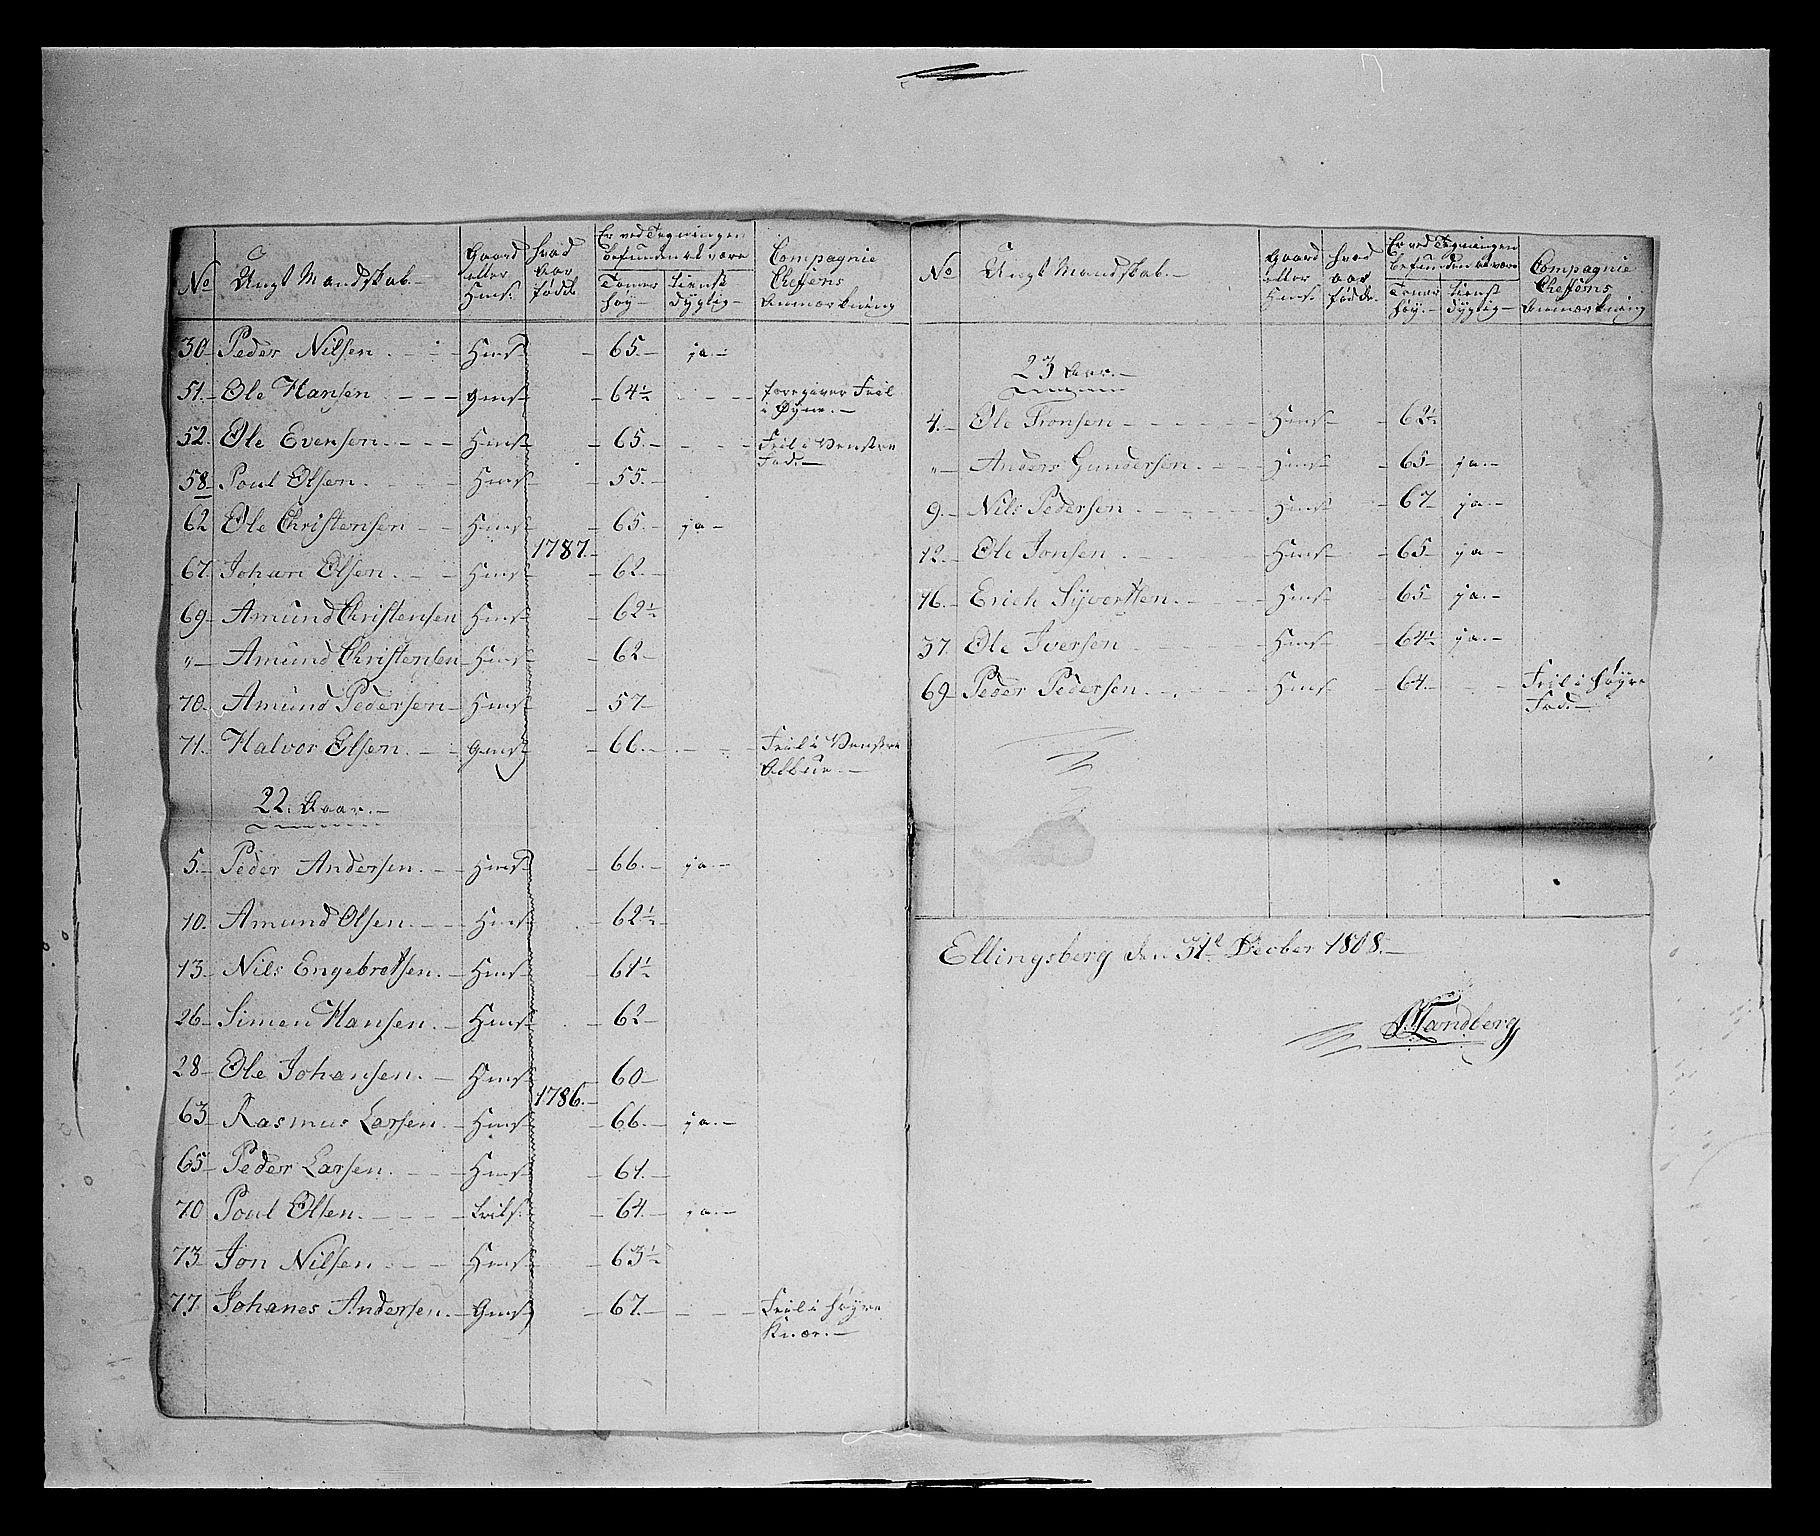 No Ungt Mandskab.- Gaard eller Huus. Hvad Aar födde. Er ved Tegningen befundet at være Tomer höy- tienst dygtig- Compagnie Cheffens Anmærkning
30- Peder Nilsen Huus- 65.- ja.-
51.- Ole Hansen 64½ foregiver Feil
i Öyne.-
52. Ole Evensen Huus- 65.- Feil i Venstre
Fod.-
58- Poul Olsen Huus- 55.-
62 Ole Christensen Huus- 65.- ja-
1787.-
67. Johan Olsen Huus- 62.-
69- Amund Christensen Huus- 62½
"- Amund Christensen Huus- 62-
70- Amund Pedersen Huus- 57-
71.- Halvor Olsen 66.- Feil i Venstre
Albue.-
22. Aar.-
5.- Peder Andersen Huus- 66.- ja.-
10. Amund Olsen Huus- 62½
13- Nils Engebretsen Huus- 61½
26- Simen Hansen Huus- 62-
28- Ole Johansen Huus- 60-
1786.-
63- Rasmus Larsen Huus- 66.- ja.-
65- Peder Larsen Huus- 61.-
70 Poul Olsen 64.- ja.-
73- Jon Nilsen Huus- 63½
77 Johanes Andersen 67.- Feil i höyre
Knæe.-
No Ungt Mandskab.- Gaard eller Huus. Hvad Aar födde. Er ved Tegningen befunden at være Tomer höy.- tienst dygtig- Compagnie Cheffens Anmærkning
23 Aar.-
4.- Ole Tronsen Huus- 62½
"- Anders Gundersen Huus- 65- ja.-
9.- Nils Pedersen Huus- 67- ja.-
12.- Ole Jonsen Huus- 65- ja-
16.- Erich Syvertsen Huus- 65- ja.-
37. Ole Iversen Huus- 64½ ja.-
69- Peder Pedersen Huus- 64.- Feil i höyre
Fod.-
Ellingsberg den 31te Decber 1808.-
Tandberg